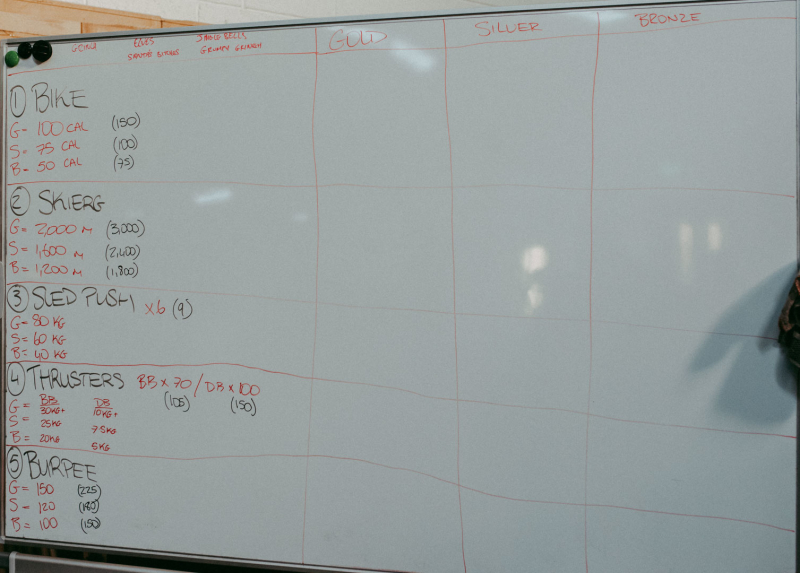 ELVES JINGLE BELLS
GRUMPY GRINCH
GOLD SILVER BRONZE
① BIKE
G- 100 CAL (150)
S= 75 CAL (100)
B= 50 CAL (75)
② SKIERG
G= 2,000 M (3,000)
S= 1,600 M (2,400)
B= 1,200 M (1,800)
③ SLED PUSH x6 (9)
G= 80 KG
S= 60 KG
B= 40 KG
④ THRUSTERS BB x 70 / DB x 100
(105) (150)
BB DB
G= 30KG+ 10KG+
S= 25KG 7.5KG
B= 20KG 5KG
⑤ BURPEE
G= 150 (225)
S= 120 (180)
B= 100 (150)